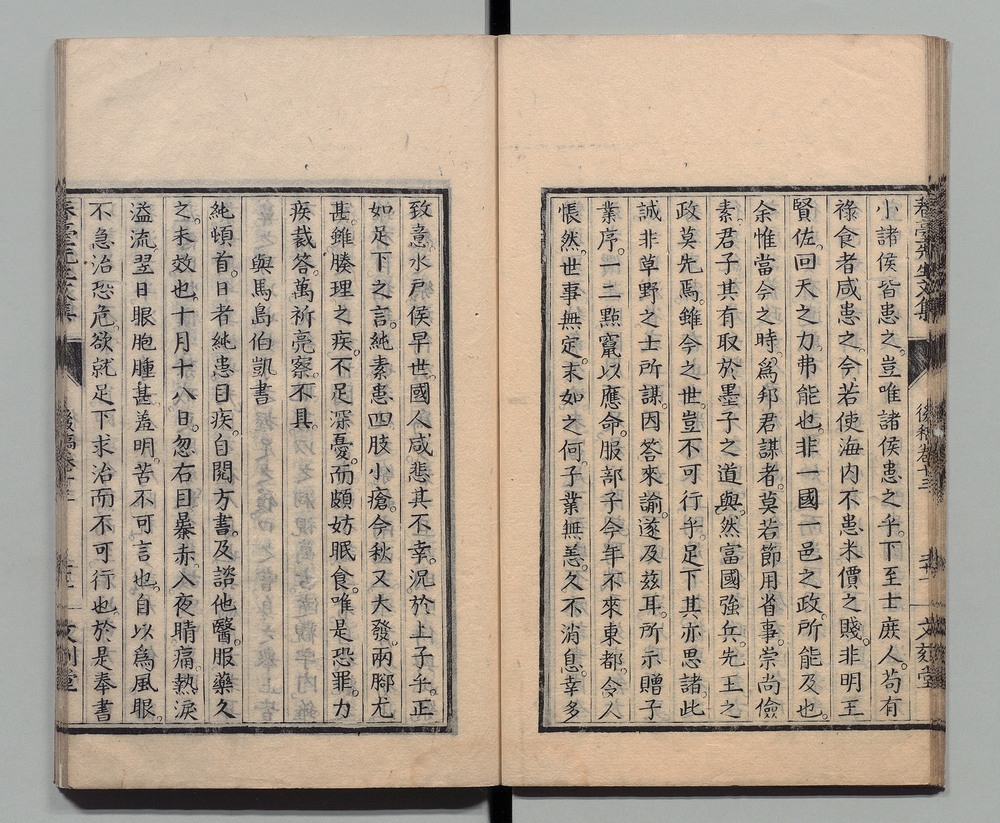 小諸侯皆患之。豈唯諸侯患之乎。下至士庶人。苟有
祿食者咸患之。今若使海内不患米價之賤。非明王
賢佐。回天之力弗能也。非一國一邑之政。所能及也。
余惟當今之時。爲邦君謀者。莫若節用省事。崇尚儉
素。君子其有取於墨子之道與。然富國強兵。先王之
政莫先焉。雖今之世。豈不可行乎。足下其亦思諸。此
誠非草野之士所謀。因答來諭。遂及茲耳。所示贈子
業序。一二點竄。以應命。服部子今年不來東都。令人
悵然。世事無定。末如之何。子業無恙。久不消息。幸多
致意。水戸侯早世。國人咸悲其不幸。況於上子乎。正
如足下之言。純素患四肢小瘡。今秋又大發。兩腳尤
甚。雖腠理之疾。不足深憂。而頗妨眠食。唯是恐罪。力
疾裁答。萬祈亮察。不具。
與馬島伯凱書
純頓首。日者純患目疾。自閲方書。及諮他醫。服藥久
之。未效也。十月十八日。忽右目暴赤。入夜睛痛。熱淚
溢流。翌日眼胞腫甚。羞明。苦不可言也。自以爲風眼。
不急治恐危。欲就足下求治而不可行也。於是奉書
後稿卷十三
文刻堂